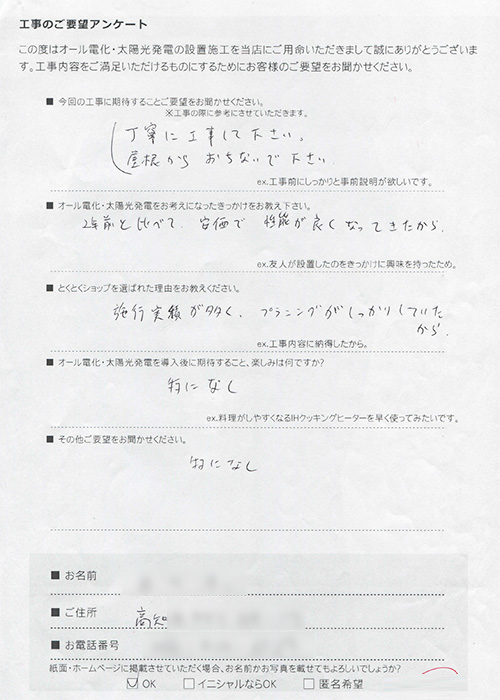 工事のご要望アンケート
この度はオール電化・太陽光発電の設置施工を当店にご用命いただきまして誠にありがとうございま
す。工事内容をご満足いただけるものにするためにお客様のご要望をお聞かせください。
■ 今回の工事に期待することご要望をお聞かせください。
※工事の際に参考にさせていただきます。
丁寧に工事して下さい。
屋根から おちないで下さい.
ex.工事前にしっかりと事前説明が欲しいです。
■ オール電化・太陽光発電をお考えになったきっかけをお教え下さい。
2年前と比べて、安価で 性能が良くなってきたから.
ex.友人が設置したのをきっかけに興味を持ったため。
■ とくとくショップを選ばれた理由をお教えください。
施行実績が多く、プランニングがしっかりしていた
から.
ex.工事内容に納得したから。
■ オール電化・太陽光発電を導入後に期待すること、楽しみは何ですか?
特になし
ex.料理がしやすくなるIHクッキングヒーターを早く使ってみたいです。
■ その他ご要望をお聞かせください。
特になし
■ お名前
■ ご住所 高知
■ お電話番号
紙面・ホームページに掲載させていただく場合、お名前かお写真を載せてもよろしいでしょうか?
OK イニシャルならOK 匿名希望